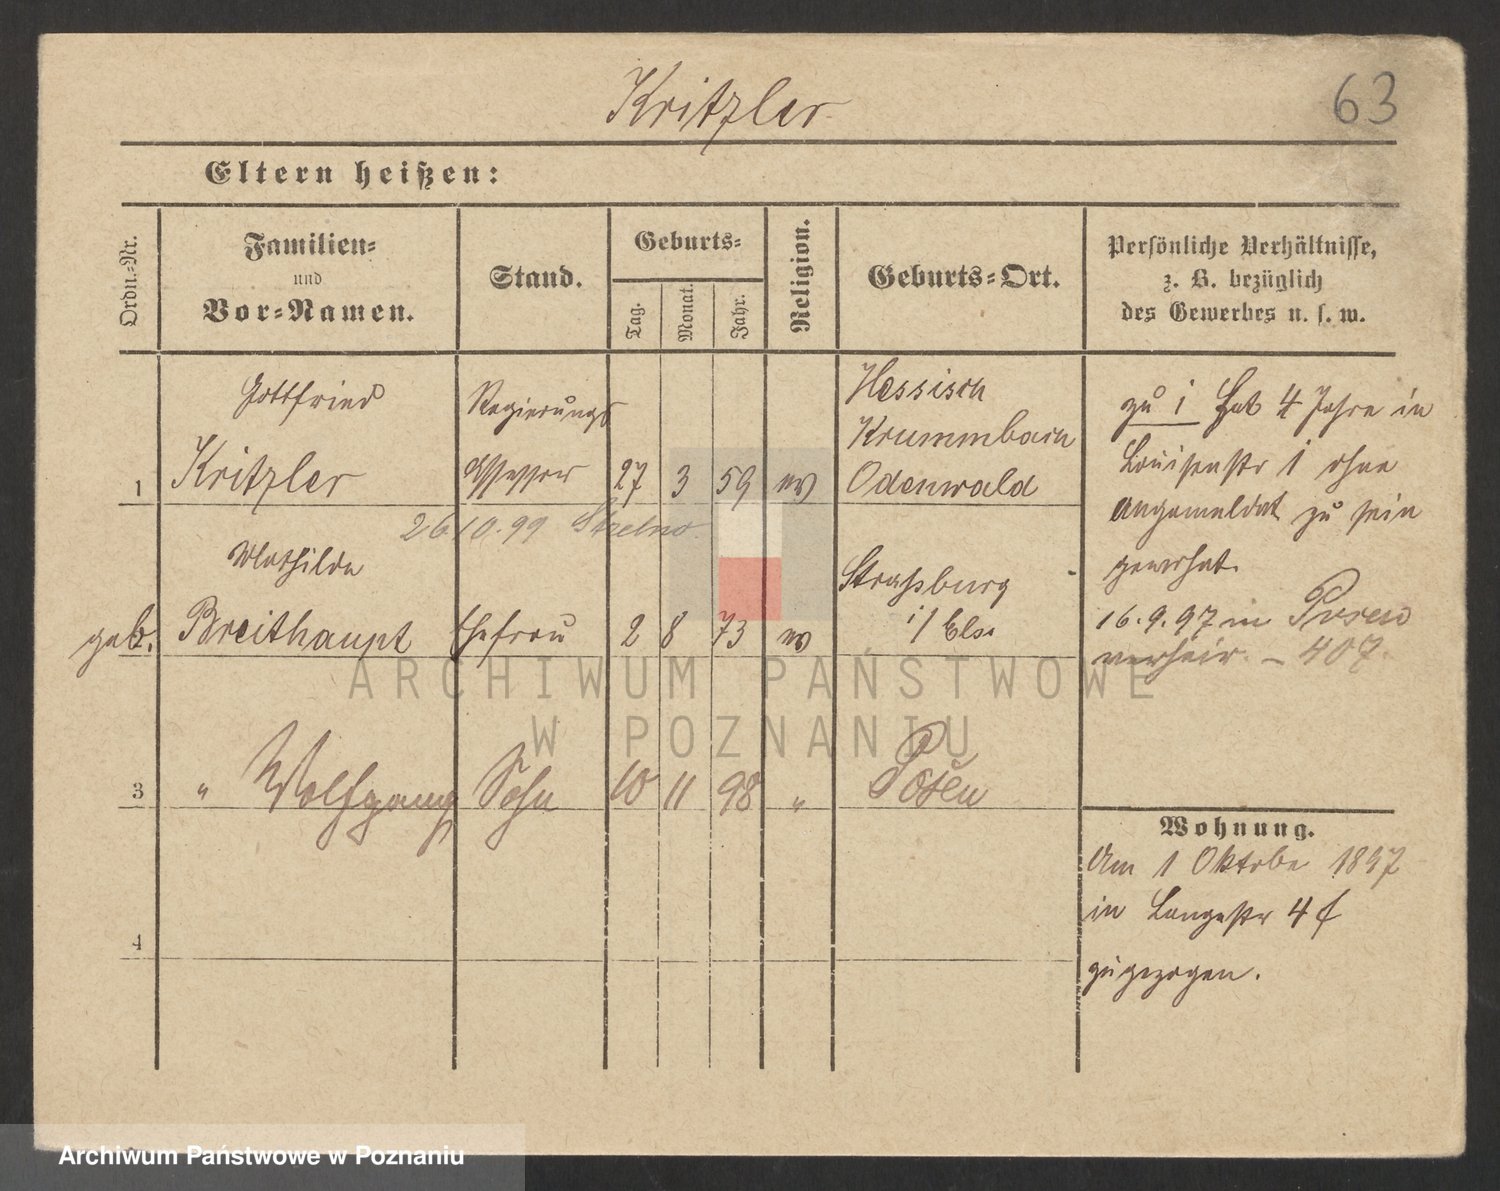 Kritzler
63
Eltern heißen:
Ordn.-Nr.
Familien-
und
Vor-Namen.
Stand.
Geburts-
Tag.
Monat.
Jahr.
Religion.
Geburts-Ort.
Persönliche Verhältnisse,
z. B. bezüglich
des Gewerbes u. s. w.
Gottfried
Regierungs
Hessisch
Krummbach
1 Kritzler Assessor 27 3 59 ev Odenwald
26.10.99 Strelno.
Mathilde
Straßburg
geb. Breithaupt Ehefrau 2 8 73 ev i/ Els.
3 " Wolfgang Sohn 10 11 98 " Posen
4
zu 1 Hat 4 Jahre in
Louisenstr 1 ohne
angemeldet zu sein
gewohnt.
16.9.97 in Posen
verheir. – 407.
Wohnung.
Am 1 Oktobe 1897
in Langestr 4 f
zugezogen.
ARCHIWUM PAŃSTWOWE
W POZNANIU
Archiwum Państwowe w Poznaniu